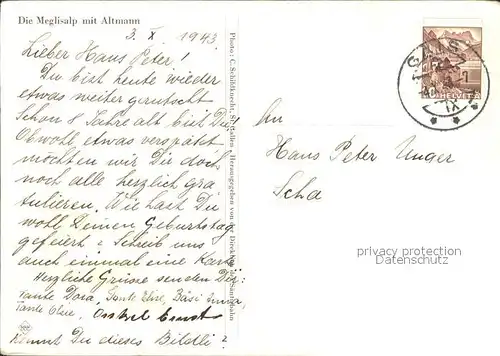 Die Meglisalp mit Altmann
3. X. 1943.
Lieber Hans Peter!
Du bist heute wieder
etwas weiter gerutscht
Schon 8 Jahre alt bist Du!
Obwohl etwas verspätet
möchten wir Dir doch
noch alle herzlich gra
tulieren. Wie hast Du
wohl Deinen Geburtstag
gefeiert? Schreib uns
auch einmal eine Karte
Herzliche Grüsse senden Dir:
Tante Dora, Tante Elise, Bäsi Anna,
Tante Oline, Onkel Ernst
Kennst Du dieses Bildli?
Photo: C. Schildknecht, St. Gallen / Herausgegeben von der Direktion der Säntisbahn
GAIS
IX
HELVETIA
An
Hans Peter Unger
Scha
privacy protection
watermark